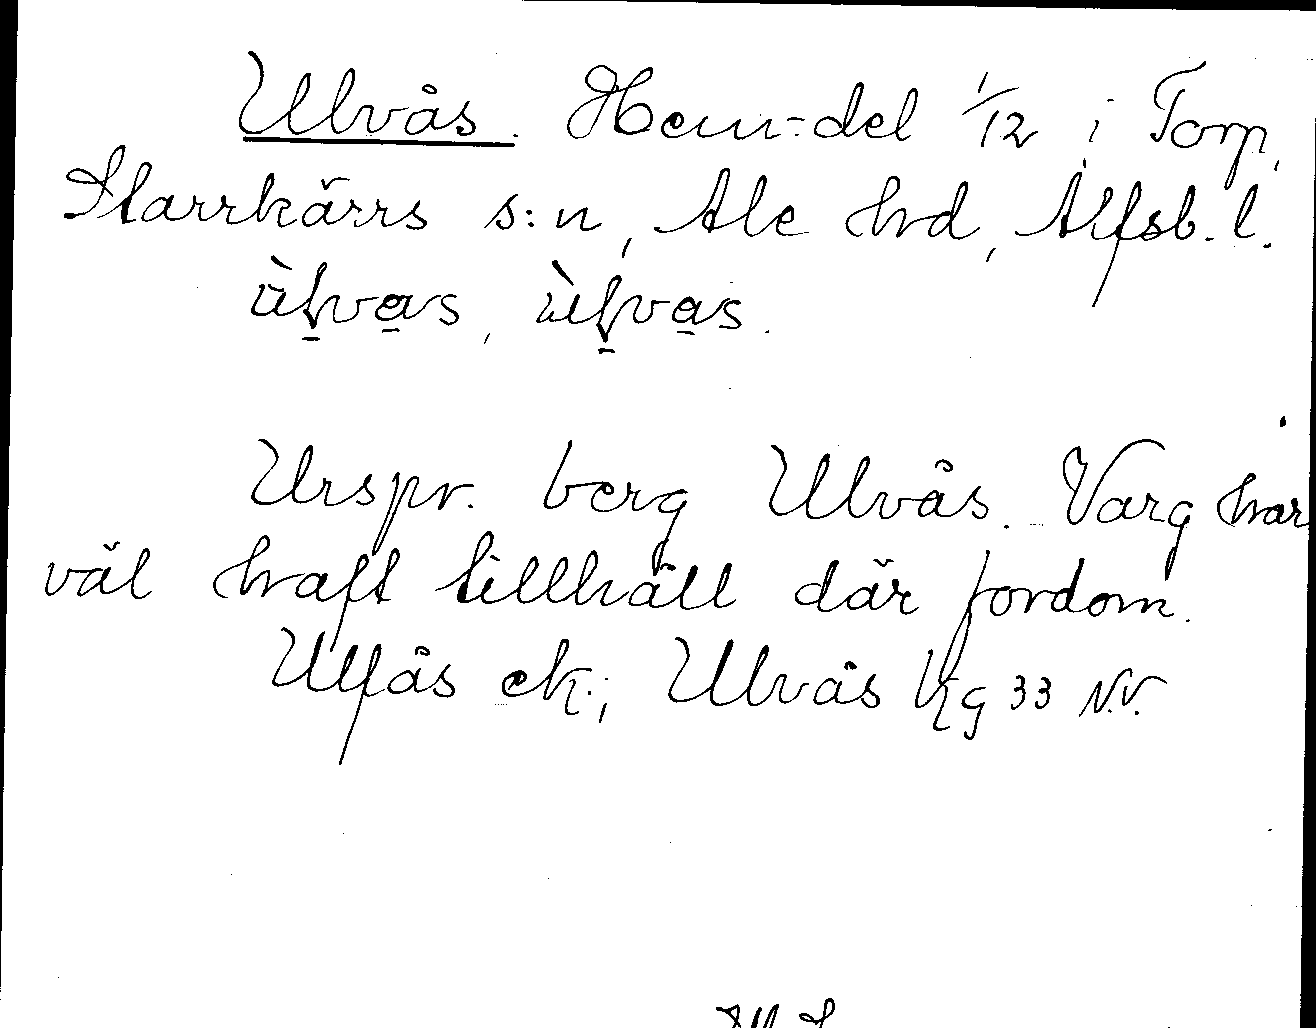 Ulvås. Hem-del 1/12 i Torp,
Starrkärrs s:n, Ale hrd, Älfsb. l.
ùlvas, ùlvas.
Urspr. berg Ulvås. Varg har
väl haft tillhåll där fordom.
Ulfås ek.; Ulvås Kg 33 N.V.